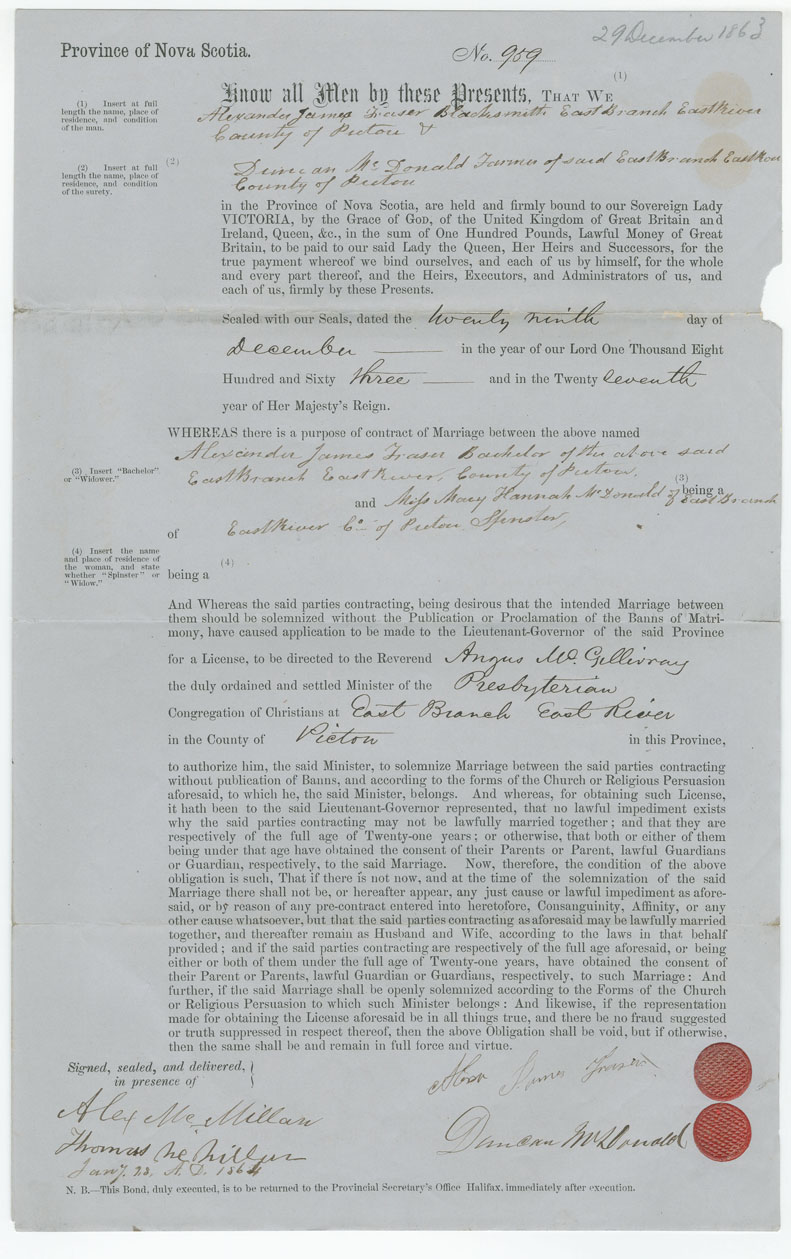 29 December 1863
Province of Nova Scotia.
No. 959
(1)
Know all Men by these Presents, THAT WE
(1) Insert at full
length the name, place of
residence, and condition
of the man.
Alexander James Fraser Blacksmith East Branch East River
County of Pictou &
(2) Insert at full
length the name, place of
residence, and condition
of the surety.
(2)
Duncan Mc Donald Farmer of said East Branch East River
County of Pictou
in the Province of Nova Scotia, are held and firmly bound to our Sovereign Lady
VICTORIA, by the Grace of GOD, of the United Kingdom of Great Britain and
Ireland, Queen, &c., in the sum of One Hundred Pounds, Lawful Money of Great
Britain, to be paid to our said Lady the Queen, Her Heirs and Successors, for the
true payment whereof we bind ourselves, and each of us by himself, for the whole
and every part thereof, and the Heirs, Executors, and Administrators of us, and
each of us, firmly by these Presents.
Sealed with our Seals, dated the twenty ninth day of
December in the year of our Lord One Thousand Eight
Hundred and Sixty three and in the Twenty seventh
year of Her Majesty's Reign.
WHEREAS there is a purpose of contract of Marriage between the above named
Alexander James Fraser Bachelor of the above said
(3) Insert "Bachelor"
or "Widower."
East Branch East River, County of Pictou.
(3)
being a
and Miss Mary Hannah Mc Donald of East Branch
of East River Co. of Pictou Spinster,
(4) Insert the name
and place of residence of
the woman, and state
whether "Spinster" or
"Widow."
(4)
being a
And Whereas the said parties contracting, being desirous that the intended Marriage between
them should be solemnized without the Publication or Proclamation of the Banns of Matri-
mony, have caused application to be made to the Lieutenant-Governor of the said Province
for a License, to be directed to the Reverend Angus Mc. Gillivray
the duly ordained and settled Minister of the Presbyterian
Congregation of Christians at East Branch East River
in the County of Pictou in this Province,
to authorize him, the said Minister, to solemnize Marriage between the said parties contracting
without publication of Banns, and according to the forms of the Church or Religious Persuasion
aforesaid, to which he, the said Minister, belongs. And whereas, for obtaining such License,
it hath been to the said Lieutenant-Governor represented, that no lawful impediment exists
why the said parties contracting may not be lawfully married together; and that they are
respectively of the full age of Twenty-one years; or otherwise, that both or either of them
being under that age have obtained the consent of their Parents or Parent, lawful Guardians
or Guardian, respectively, to the said Marriage. Now, therefore, the condition of the above
obligation is such, That if there is not now, and at the time of the solemnization of the said
Marriage there shall not be, or hereafter appear, any just cause or lawful impediment as afore-
said, or by reason of any pre-contract entered into heretofore, Consanguinity, Affinity, or any
other cause whatsoever, but that the said parties contracting as aforesaid may be lawfully married
together, and thereafter remain as Husband and Wife, according to the laws in that behalf
provided; and if the said parties contracting are respectively of the full age aforesaid, or being
either or both of them under the full age of Twenty-one years, have obtained the consent of
their Parent or Parents, lawful Guardian or Guardians, respectively, to such Marriage: And
further, if the said Marriage shall be openly solemnized according to the Forms of the Church
or Religious Persuasion to which such Minister belongs: And likewise, if the representation
made for obtaining the License aforesaid be in all things true, and there be no fraud suggested
or truth suppressed in respect thereof, then the above Obligation shall be void, but if otherwise,
then the same shall be and remain in full force and virtue.
Signed, sealed, and delivered,
in presence of
Alexr James Fraser
Alex Mc Millan
Duncan McDonald
Thomas McMillan
Jany. 22, A.D. 1864
N. B.—This Bond, duly executed, is to be returned to the Provincial Secretary's Office Halifax, immediately after execution.